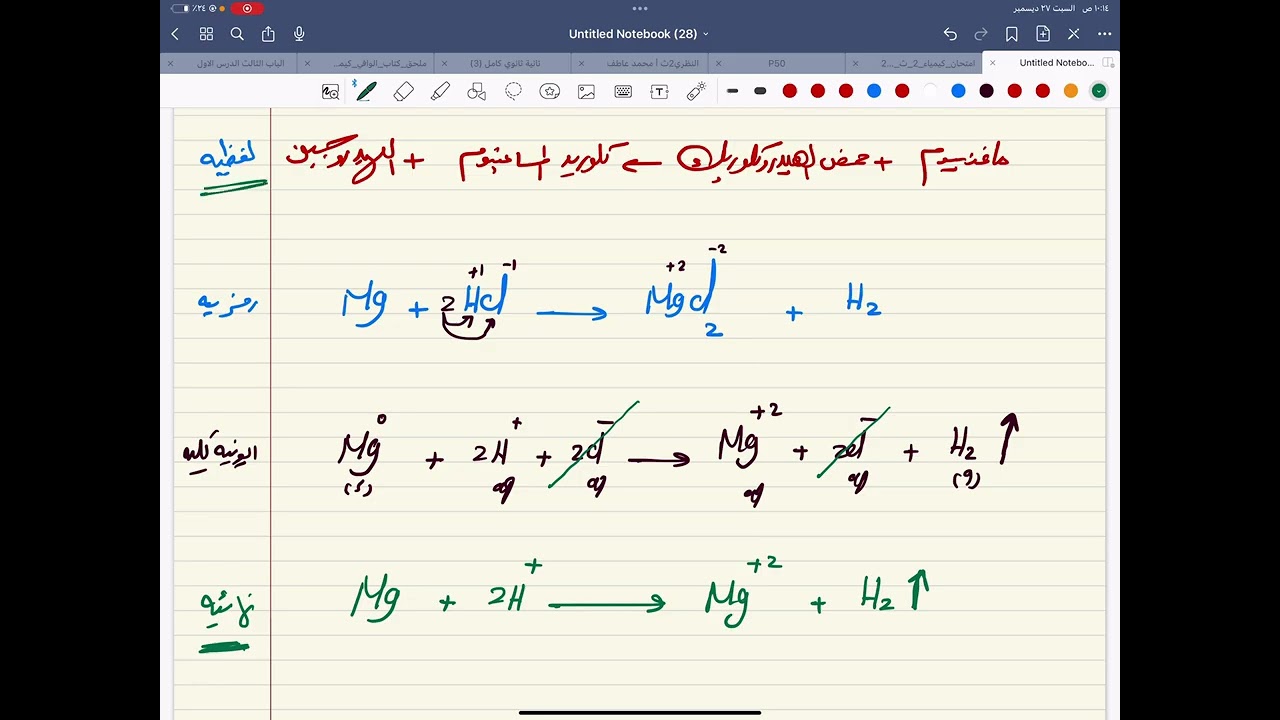 ١٠:١٤ ص السبت ٢٧ ديسمبر ٢٤٪
Untitled Notebook (28)
الباب الثالث الدرس الاول
ملحق_كتاب_الوافي_كيم...
ثانية ثانوي كامل (3)
النظري2ث أ محمد عاطف
P50
امتحان_كيمياء_2_ث_...2
Untitled Notebo...
لفظيه
ماغنسيوم + حمض الهيدروكلوريك → كلوريد الماغنسيوم + الهيدروجين
رمزيه
Mg + 2H⁺¹Cl⁻¹ → Mg⁺²Cl₂⁻² + H₂
ايونية كليه
Mg⁰(s) + 2H⁺aq + 2Cl⁻aq → Mg⁺²aq + 2Cl⁻aq + H₂(g) ↑
نهائيه
Mg + 2H⁺ → Mg⁺² + H₂ ↑